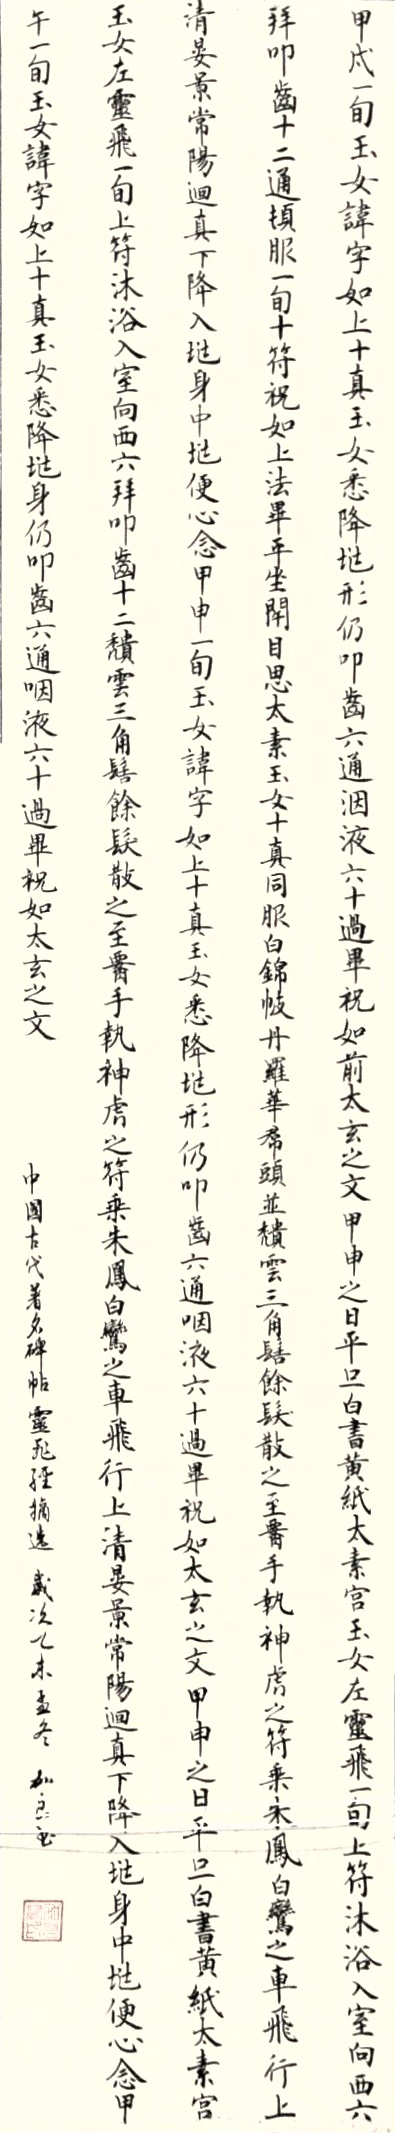 甲戌一旬玉女諱字如上十真玉女悉降㘴形仍叩齒六通洇液六十過畢祝如前太玄之文甲申之日平旦白書黄紙太素宫玉女左靈飛一旬上符沐浴入室向西六
拜叩齒十二通頓服一旬十符祝如上法畢平坐閉目思太素玉女十真同服白錦帔丹羅華帬頭並穨雲三角髻餘髮散之至署手執神虎之符乗朱鳳白鸞之車飛行上
清晏景常陽迴真下降入㘴身中㘴便心念甲申一旬玉女諱字如上十真玉女悉降㘴形仍叩齒六通咽液六十過畢祝如太玄之文甲申之日平旦白書黄紙太素宫
玉女左靈飛一旬上符沐浴入室向西六拜叩齒十二穨雲三角髻餘髮散之至署手執神虎之符乗朱鳳白鸞之車飛行上清晏景常陽迴真下降入㘴身中㘴便心念甲
午一旬玉女諱字如上十真玉女悉降㘴身仍叩齒六通咽液六十過畢祝如太玄之文
中國古代著名碑帖靈飛經摘選歲次乙未孟冬